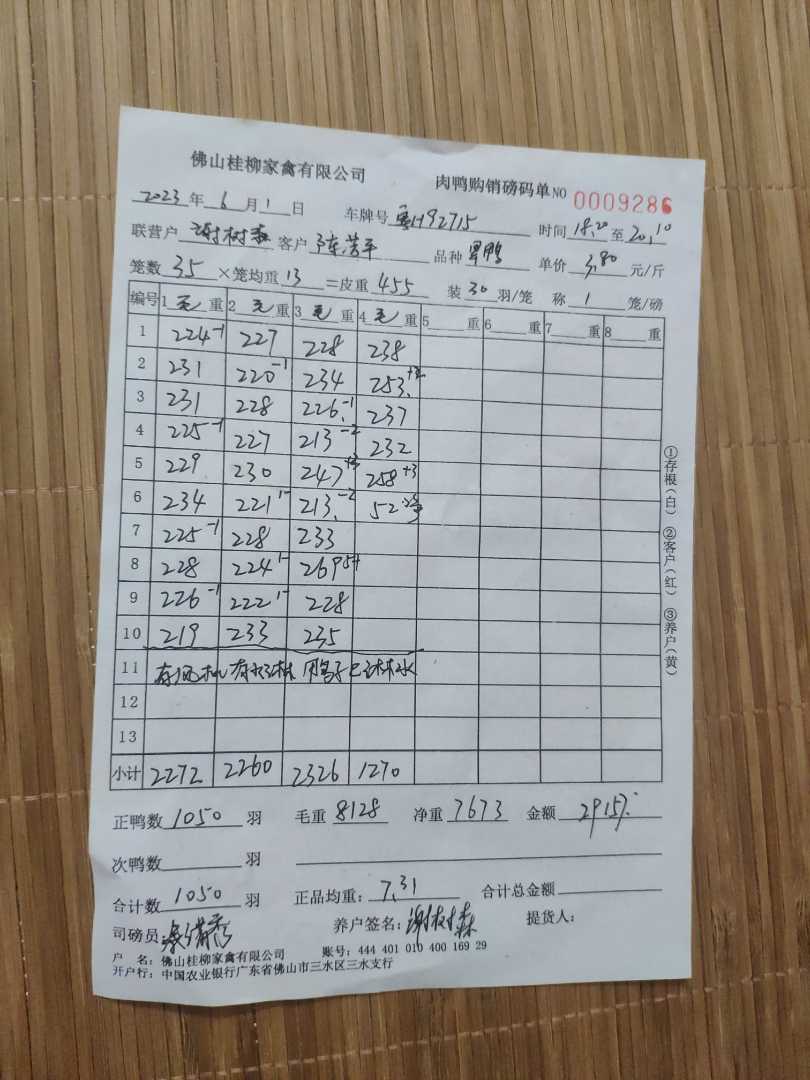 佛山桂柳家禽有限公司 肉鸭购销磅码单 NO 0009286
2023 年 6 月 1 日 车牌号 粤H92715 时间 18.20 至 20.10
联营户 谢树森 客户 陈芳平 品种 单价 3.80 元/斤
笼数 35 ×笼均重 13 =皮重 455 装 30 羽/笼 称 1 笼/磅
编号 1 毛 重 2 毛 重 3 毛 重 4 毛 重 5 重 6 重 7 重 8 重
1 224-1 227 228 238
2 231 220-1 234 253
3 231 228 226-1 237
4 225-1 227 213-2 232
5 229 230 247+3 258+3
6 234 221 1- 213-2 52
7 225-1 228 233
8 228 224 1- 269
9 226-1 222 1- 228
10 219 233 235
11 有风机 有水
12
13
小计 2272 2260 2326 1270
正鸭数 1050 羽 毛重 8128 净重 7673 金额 29157
次鸭数 羽
合计数 1050 羽 正品均重: 7.31 合计总金额
司磅员: 养户签名: 谢树森 提货人:
户 名: 佛山桂柳家禽有限公司 账号: 444 401 010 400 169 29
开户行: 中国农业银行广东省佛山市三水区三水支行
①存根(白) ②客户(红) ③养户(黄)